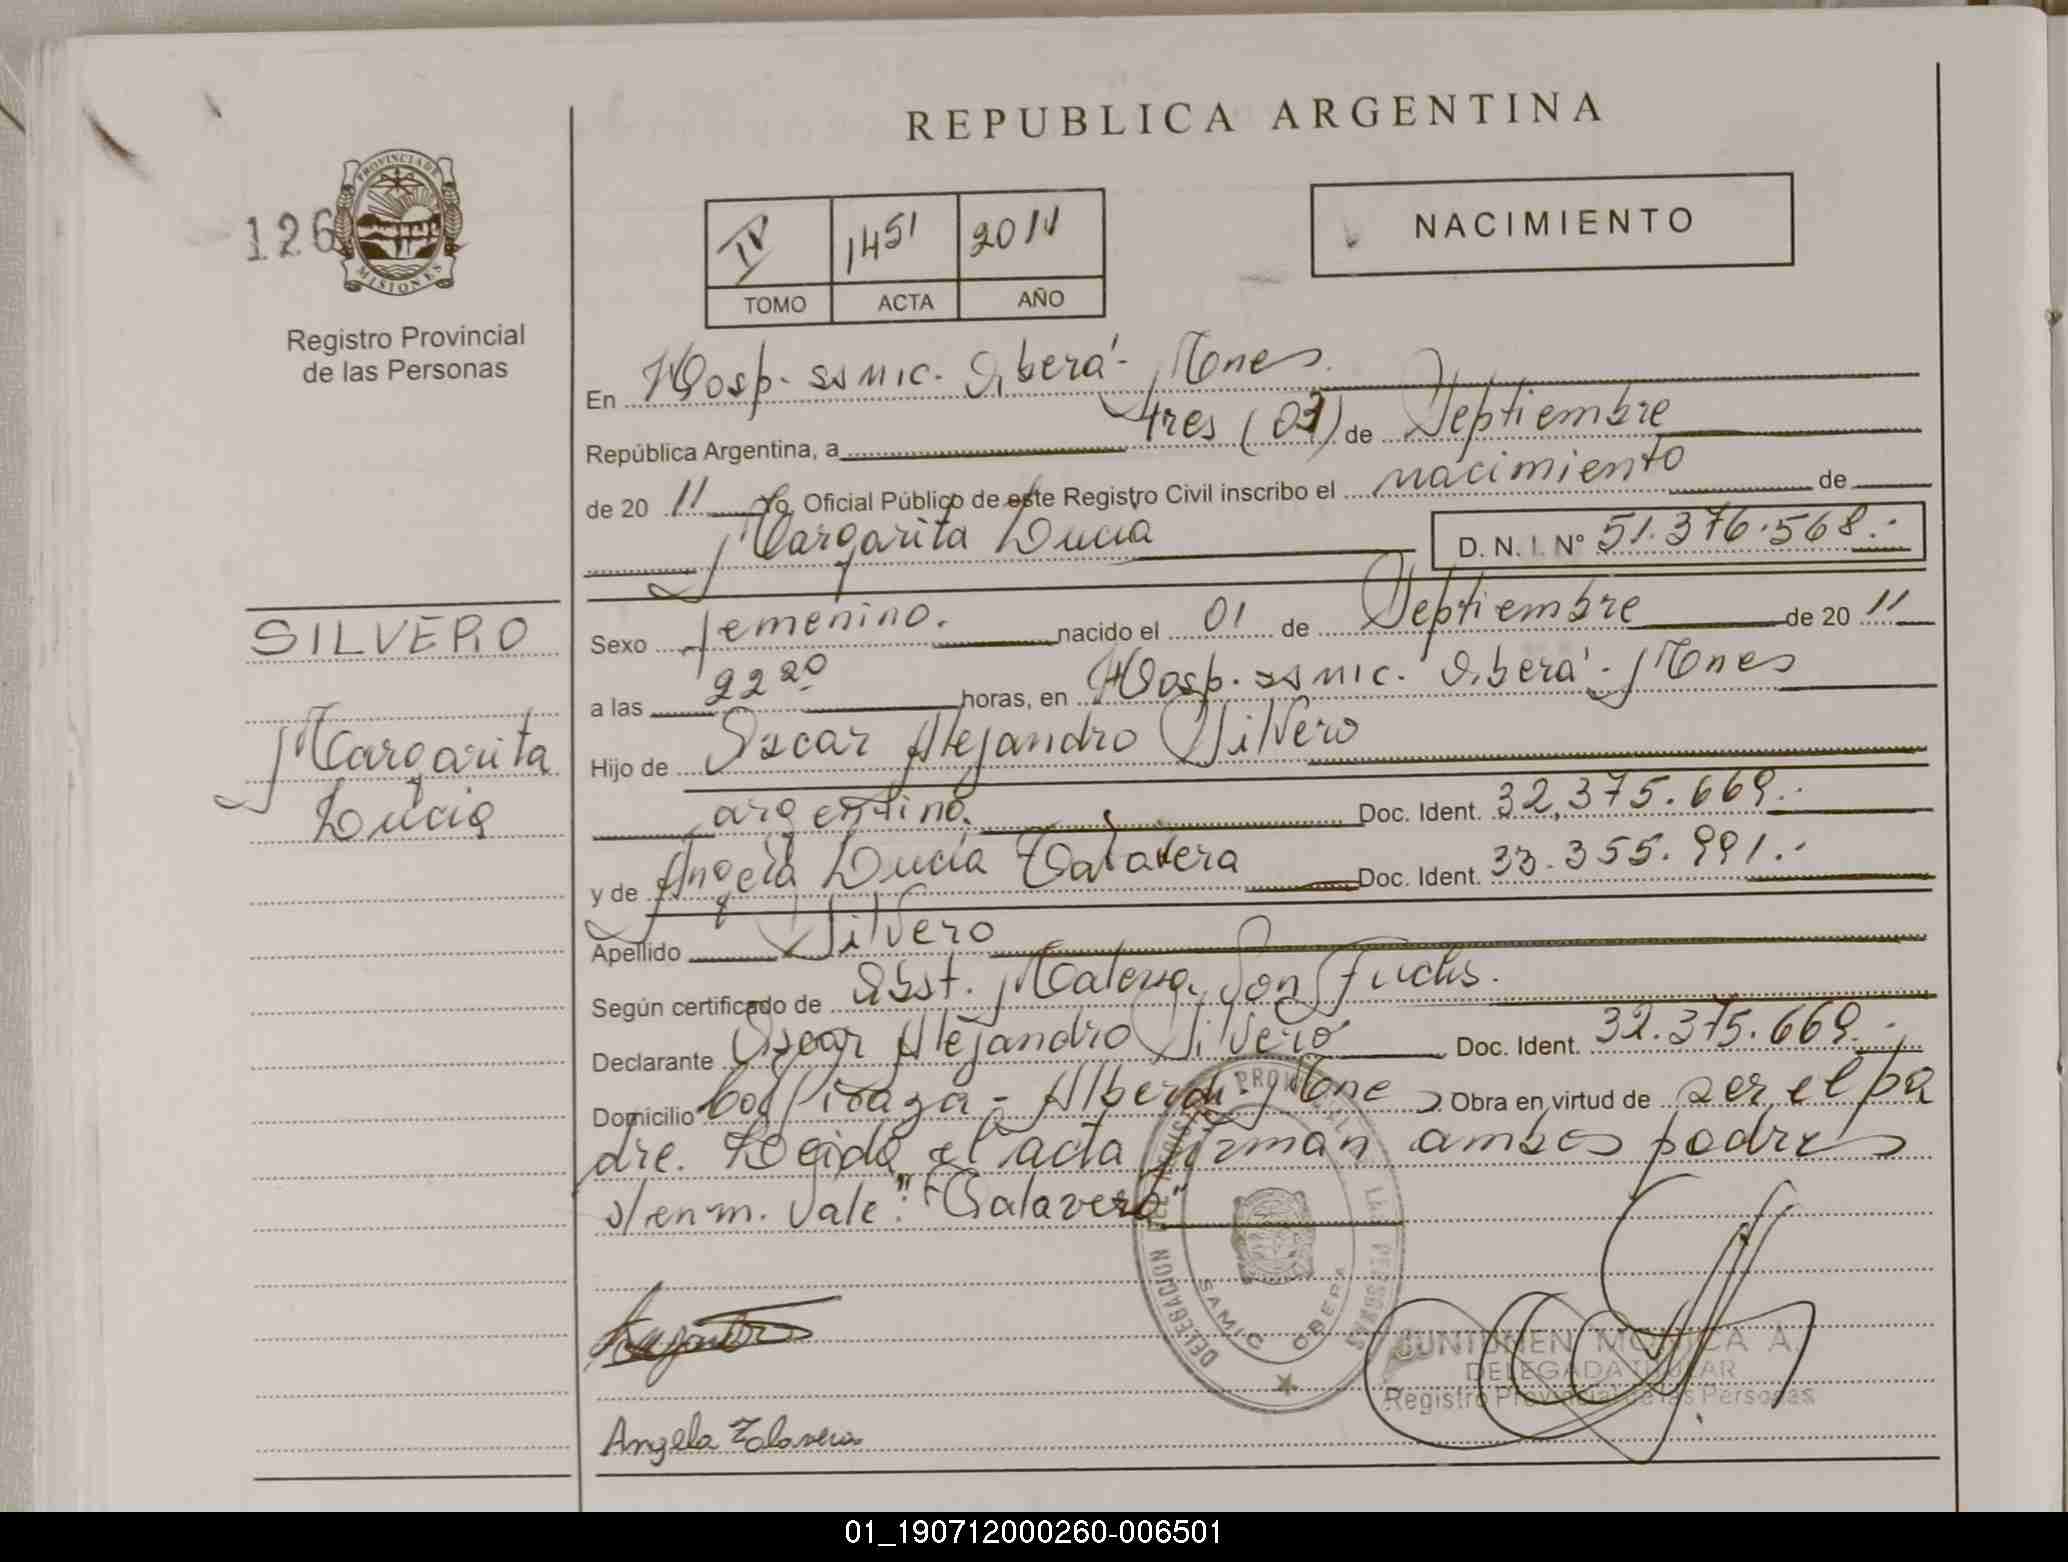 REPUBLICA ARGENTINA
126
PROVINCIA DE
MISIONES
Registro Provincial
de las Personas
IV 1451 2011
TOMO ACTA AÑO
NACIMIENTO
En Hosp. ssmic. Oberá - Mones.
República Argentina, a tres (03) de Septiembre
de 20 11 Yo, Oficial Público de este Registro Civil inscribo el nacimiento de
Margarita Lucia D. N. I. Nº 51.376.568.-
SILVERO
Margarita
Lucia
Sexo femenino. nacido el 01 de Septiembre de 20 11
a las 22 20 horas, en Hosp. ssmic. Oberá - Mones
Hijo de Oscar Alejandro Silvero
argentino. Doc. Ident. 32.375.669.-
y de Angela Lucia Talavera Doc. Ident. 33.355.991.-
Apellido Silvero
Según certificado de Obst. Fuchs.
Declarante Oscar Alejandro Silvero Doc. Ident. 32.375.669.-
Domicilio Alberdi - Mones Obra en virtud de ser el pa
dre. Leida el acta firman ambos padres
s/enm. Vale: "Talavera"
DELEGACION DEL REGISTRO PROVINCIAL DE LAS PERSONAS
SAMIC OBERA
Angela Talavera
MONICA A.
DELEGADA TITULAR
Registro Provincial de las Personas
01_190712000260-006501